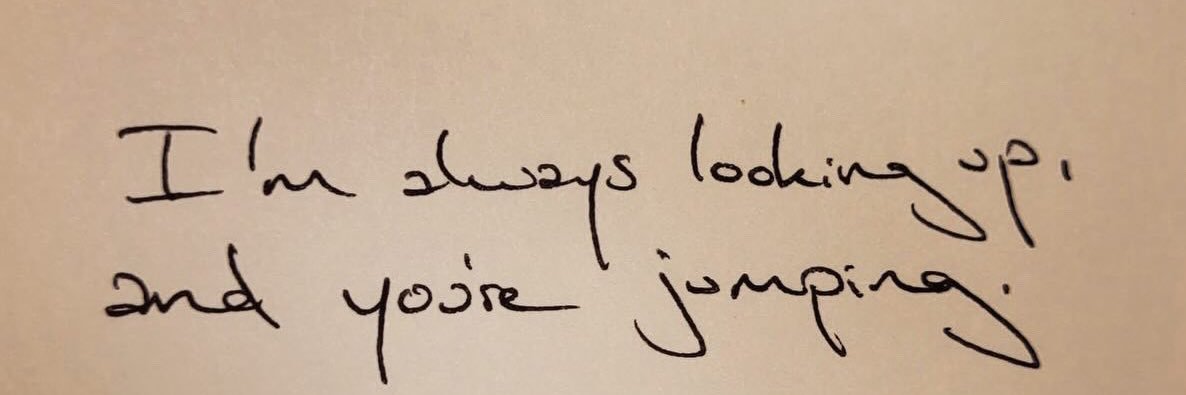 I'm always looking up,
and you're jumping.